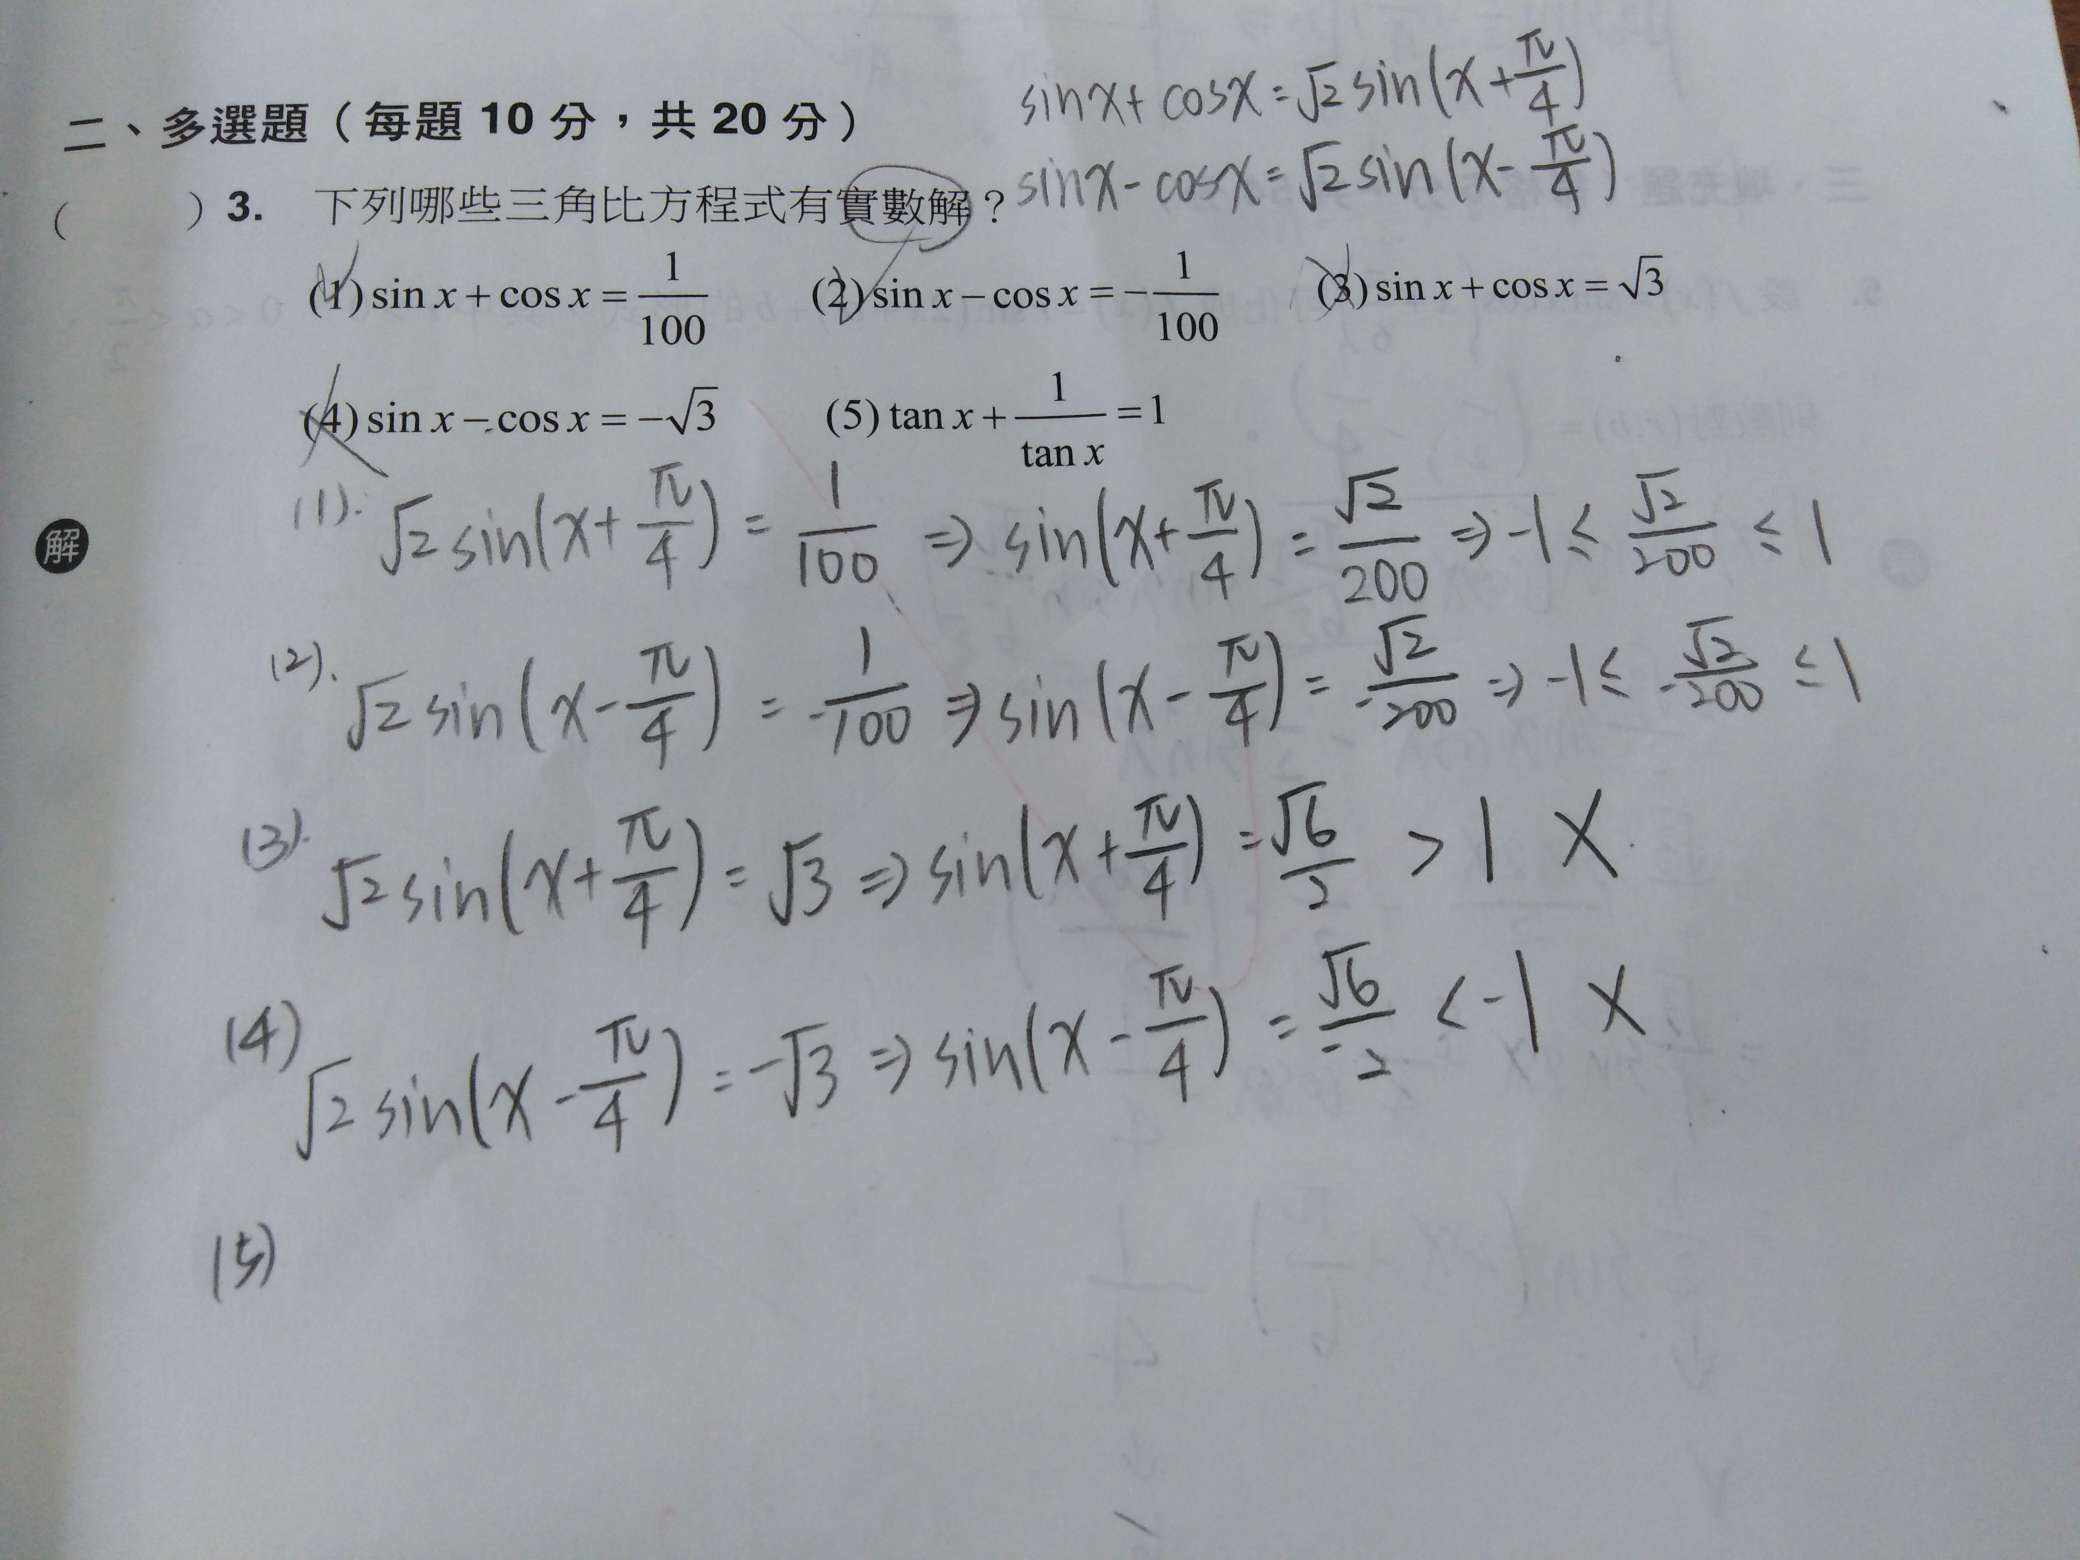 sinx+cosx=√2sin(x+π/4)
二、多選題（每題 10 分，共 20 分）
sinx-cosx=√2sin(x-π/4)
（　　）3. 下列哪些三角比方程式有實數解？
(1) sin x + cos x = 1/100 (2) sin x − cos x = −1/100 (3) sin x + cos x = √3
(4) sin x − cos x = −√3 (5) tan x + 1/tan x = 1
解
(1). √2sin(x+π/4) = 1/100 ⇒ sin(x+π/4) = √2/200 ⇒ -1 ≤ √2/200 ≤ 1
(2). √2sin(x-π/4) = -1/100 ⇒ sin(x-π/4) = -√2/200 ⇒ -1 ≤ -√2/200 ≤ 1
(3). √2sin(x+π/4) = √3 ⇒ sin(x+π/4) = √6/2 > 1 X
(4) √2sin(x-π/4) = -√3 ⇒ sin(x-π/4) = -√6/2 < -1 X
(5)